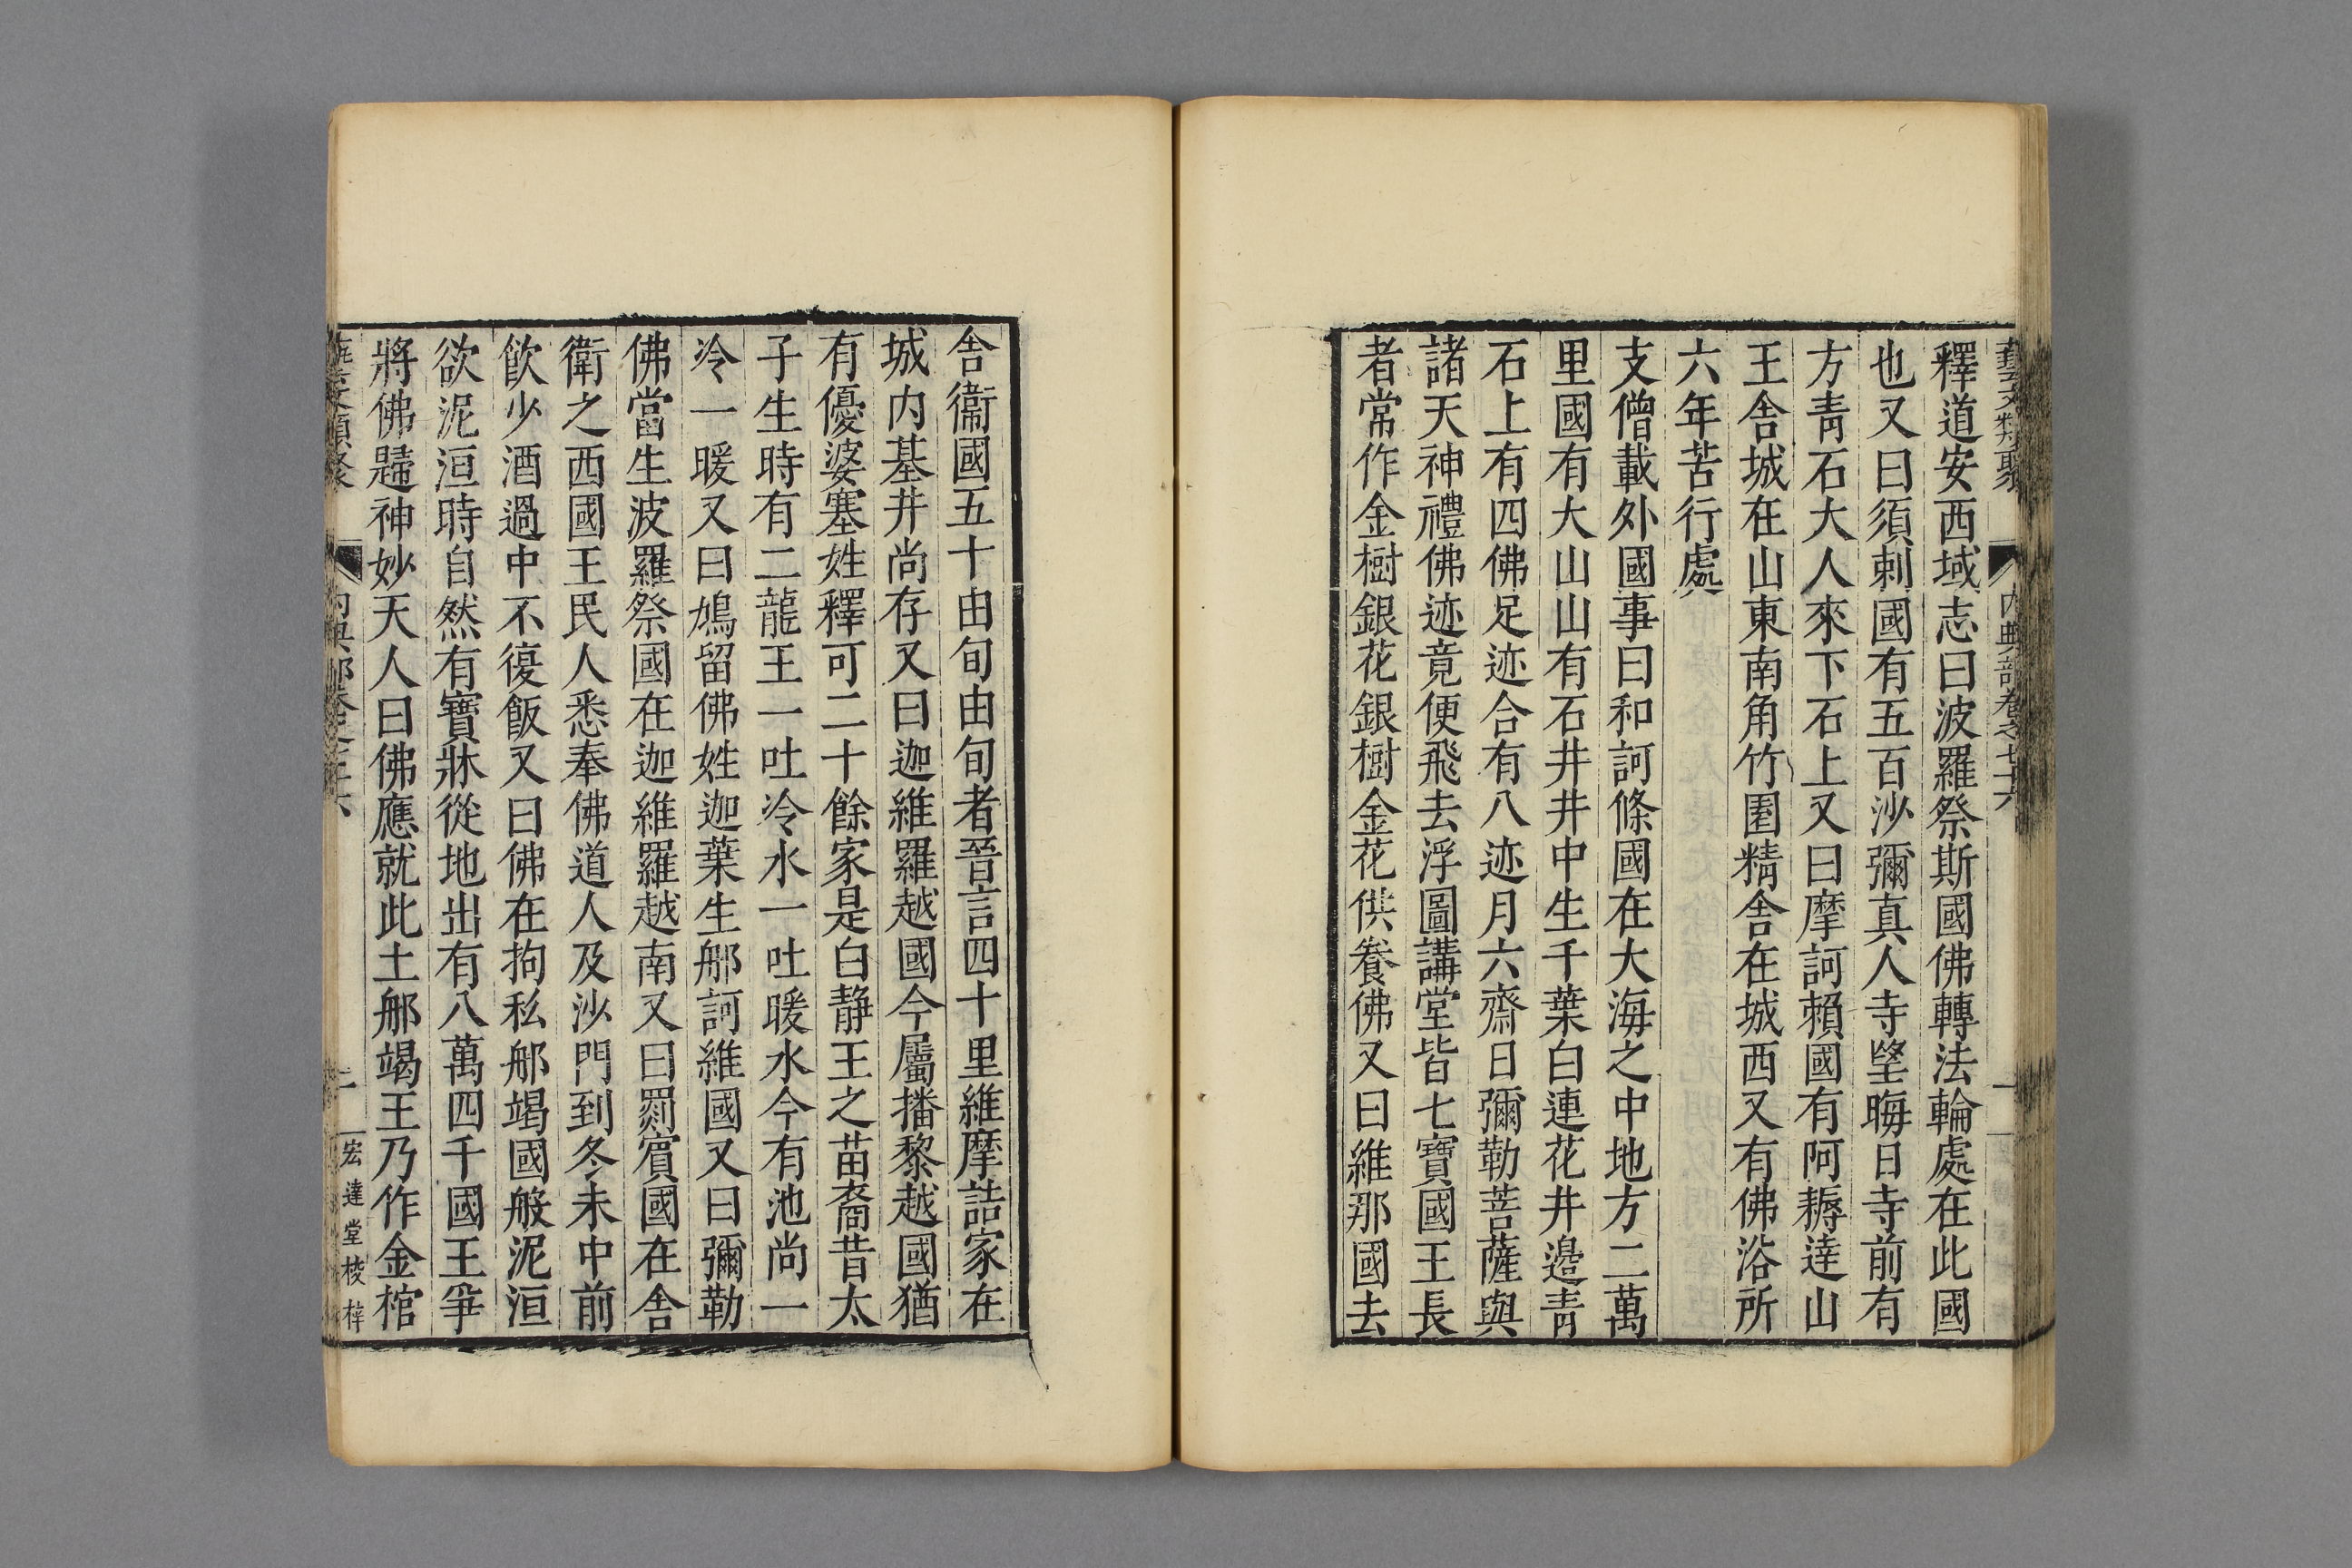 藝文類聚 內典部卷之七十六 一
釋道安西域志曰波羅祭斯國佛轉法輪處在此國
也又曰須剌國有五百沙彌真人寺望晦日寺前有
方青石大人來下石上又曰摩訶賴國有阿耨達山
王舍城在山東南角竹園精舍在城西又有佛浴所
六年苦行處
支僧載外國事曰和訶條國在大海之中地方二萬
里國有大山山有石井井中生千葉白連花井邉青
石上有四佛足迹合有八迹月六齋日彌勒菩薩與
諸天神禮佛迹竟便飛去浮圖講堂皆七寶國王長
者常作金樹銀花銀樹金花供養佛又曰維那國去
舍衞國五十由旬由旬者晉言四十里維摩詰家在
城内基井尚存又曰迦維羅越國今屬播黎越國猶
有優婆塞姓釋可二十餘家是白静王之苗裔昔太
子生時有二龍王一吐冷水一吐暖水今有池尚一
冷一暖又曰鳩留佛姓迦葉生那訶維國又曰彌勒
佛當生波羅祭國在迦維羅越南又曰罽賔國在舍
衛之西國王民人悉奉佛道人及沙門到冬未中前
飲少酒過中不復飯又曰佛在拘私那竭國般泥洹
欲泥洹時自然有寶牀從地出有八萬四千國王爭
將佛歸神妙天人曰佛應就此土那竭王乃作金棺
藝文類聚 內典部卷之七十六 二 宏達堂校梓